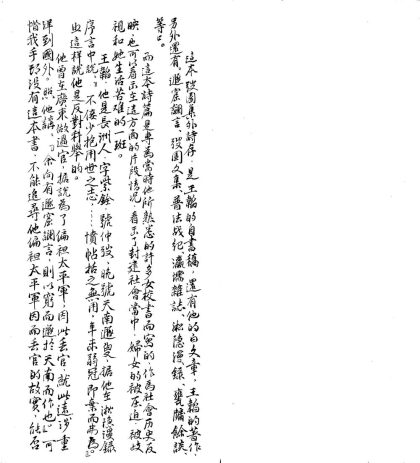 这本弢園集外詩存，是王韜的自書稿，還有他的白文章，王韜的著作，
另外還有，遯窟讕言、弢園文集、普法战纪、瀛濡雜誌、淞隐漫錄、甕牖餘談
等々。
而這本詩篇是專為當時他所熟悉的許多女校書而寫的，作為社会歷史反
映，也可以看出在這方面的片段情况，看出了封建社會當中，婦女的被压迫，被歧
視和她生活苦难的一斑。
王韜，他是長洲人，字紫銓，號仲弢，晚號天南遯叟，据他在淞隐漫録
序言中说："不佞少抱用世之志……憤帖括之無用，年未弱冠即棄而弗為。"
由這樣说他是反對科舉的。
他曾在廣東做過官，据說為了偏袒太平軍，因此丢官，就此遠涉重
洋到國外。照他講："余向有遯窟讕言，則以窮而遯於天南而作也。"可
惜我手邊没有這本書，不能追尋他偏袒太平軍因而丢官的故實，能否